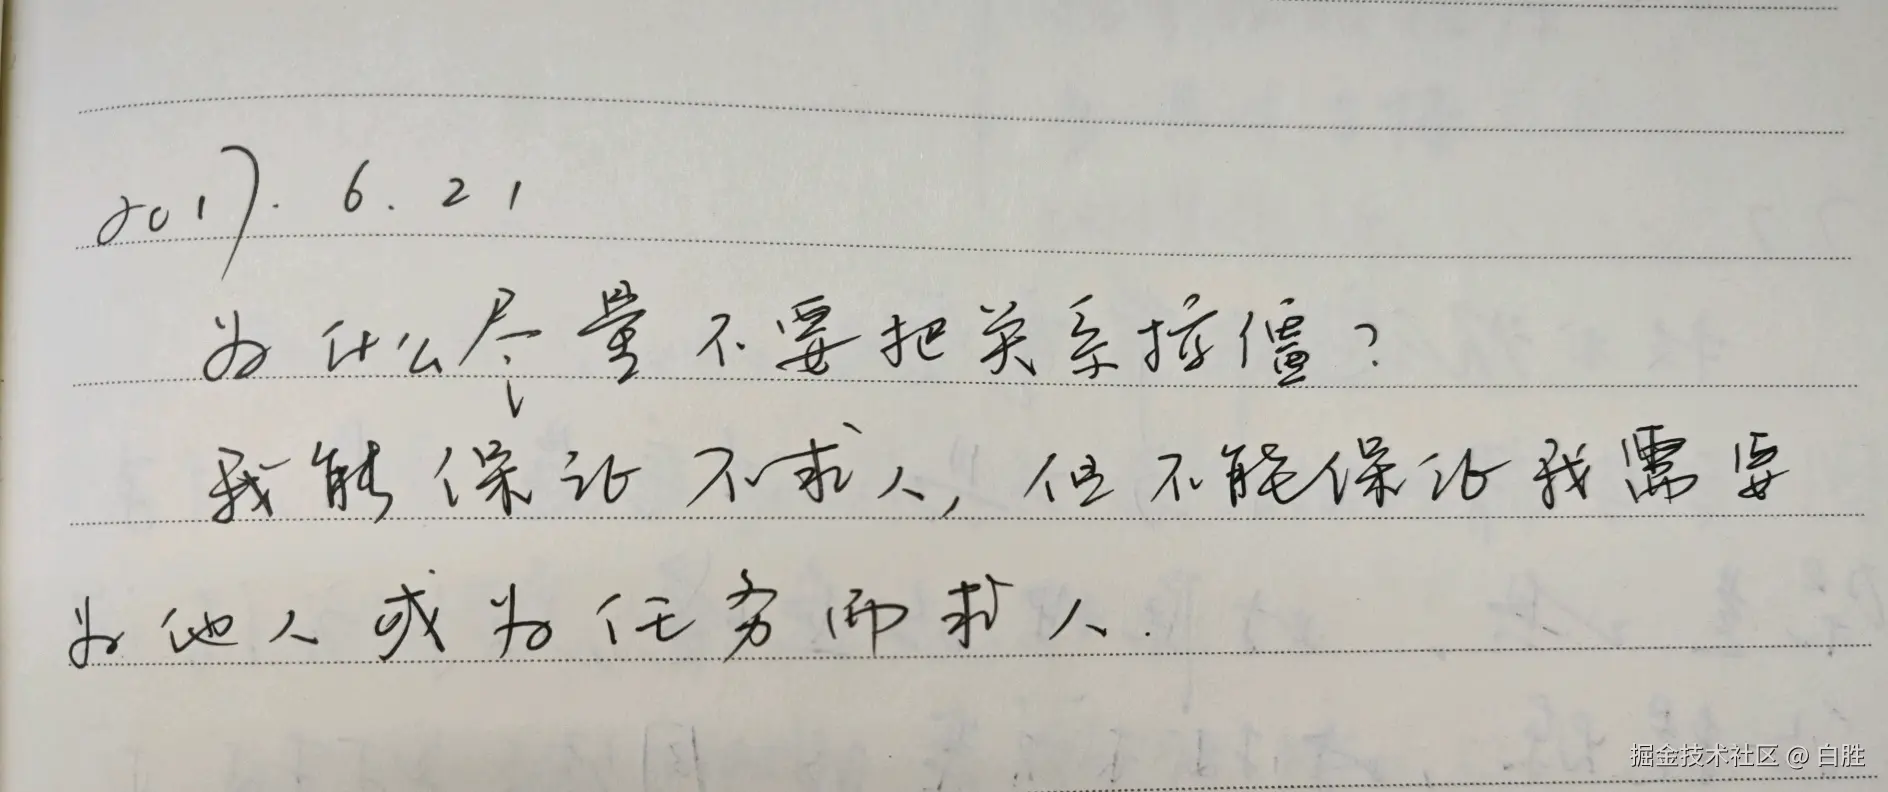 2017. 6. 21
为什么尽量不要把关系搞僵?
我能保证不求人,但不能保证我需要
为他人或为任务而求人.
掘金技术社区 @ 白胜